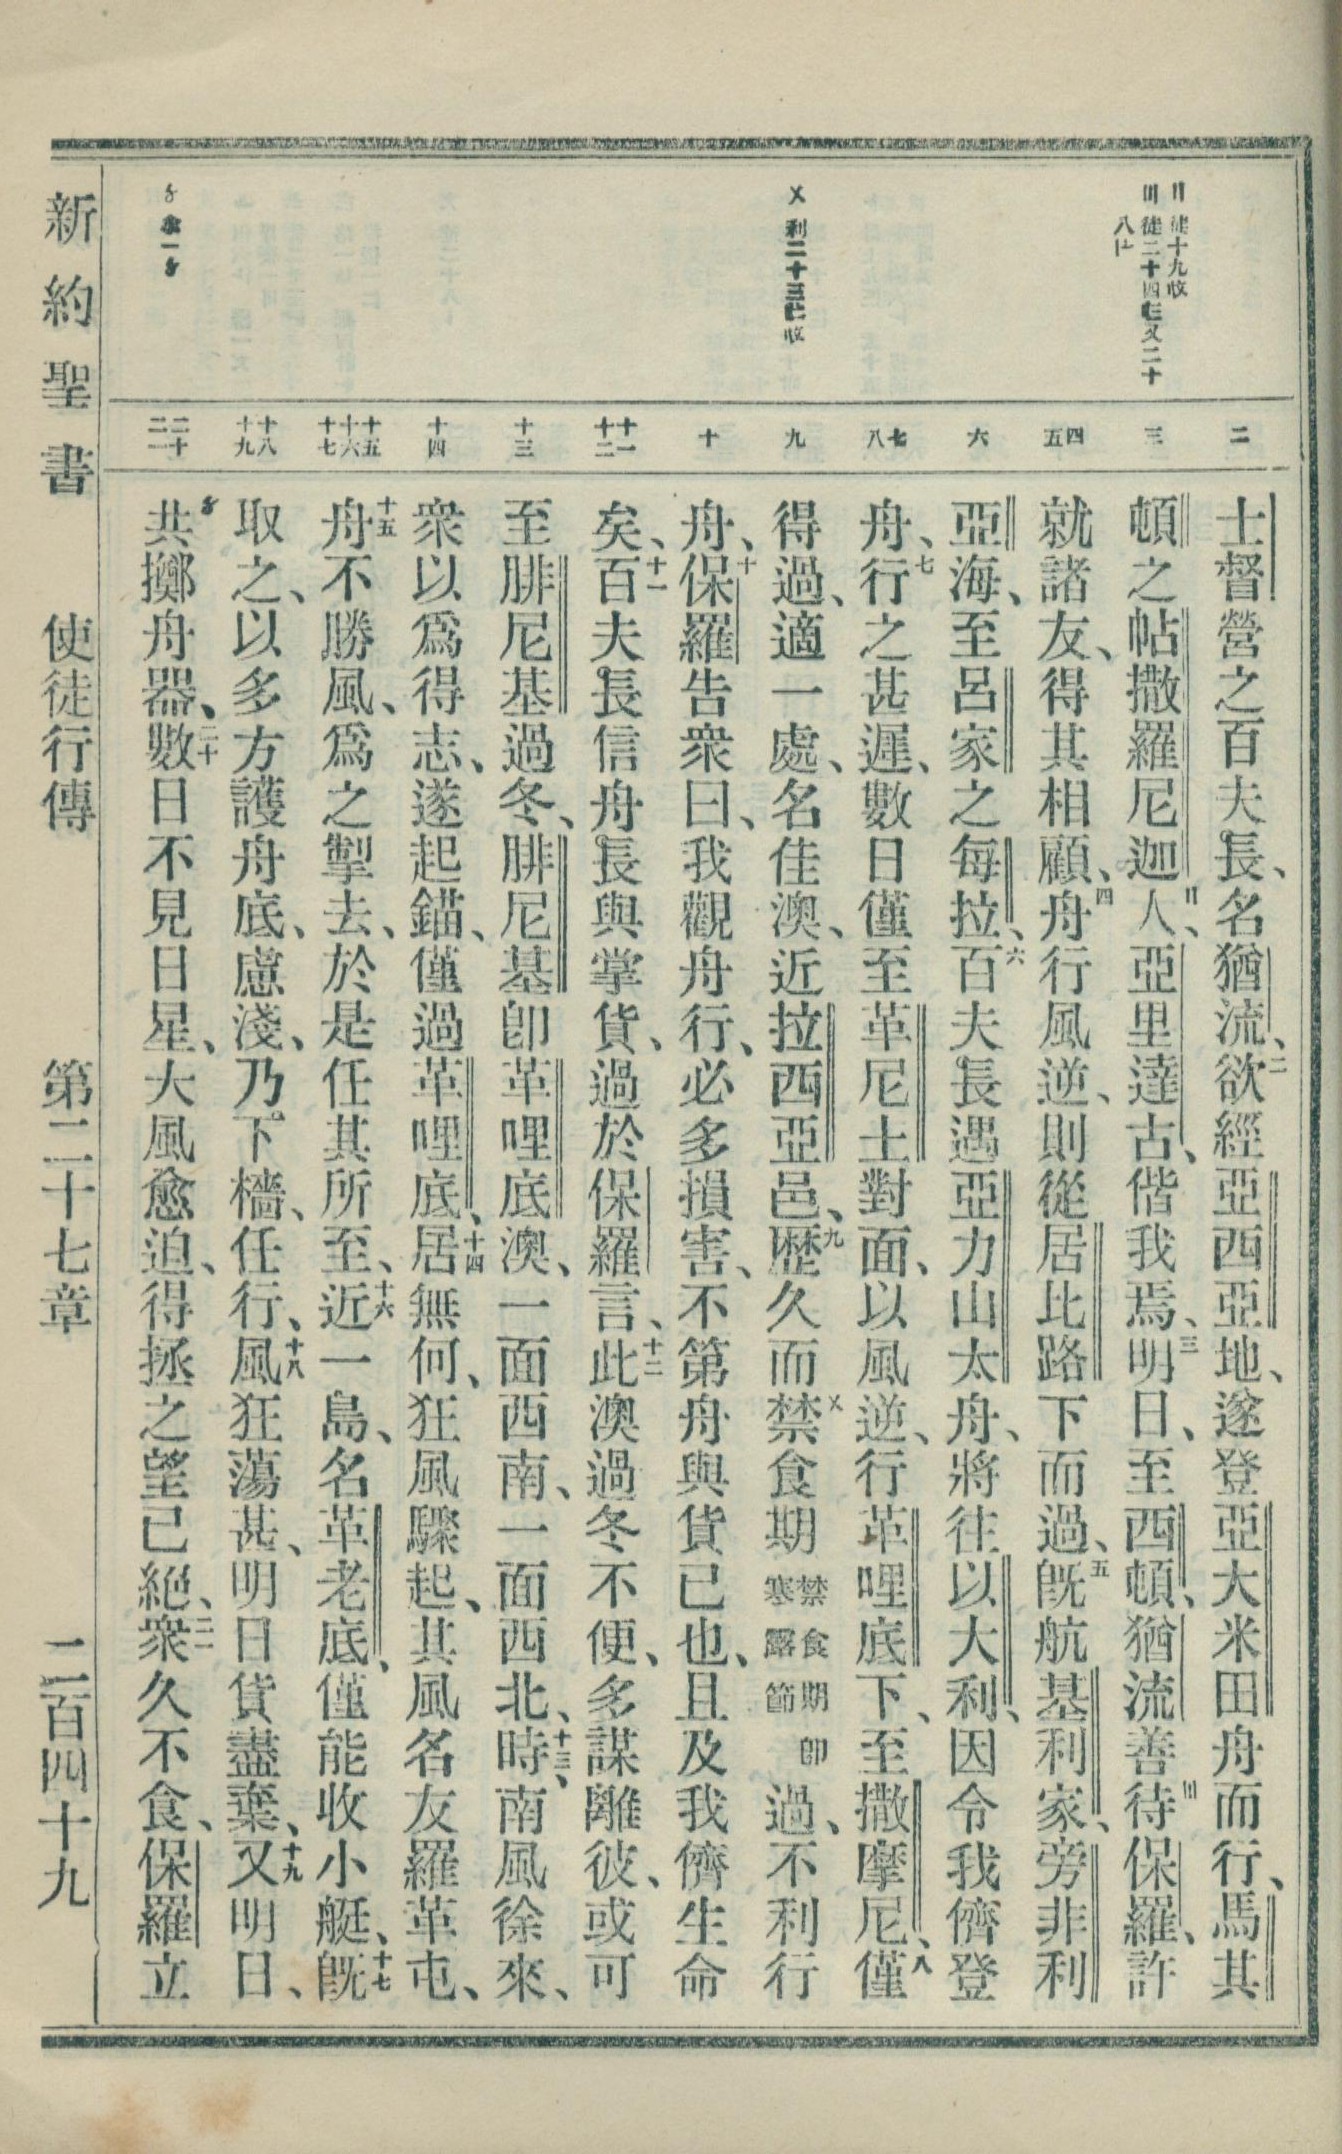 〢徒十九〩
〣徒二十四〨又二十
八〦
〤利二十三〨〩
〥拿一〥
二
三
四
五
六
七
八
九
十
十一
十二
十三
十四
十五
十六
十七
十八
十九
二十
二一
士督營之百夫長、名猶流、二欲經亞西亞地、遂登亞大米田舟而行、馬其
頓之帖撒羅尼迦人、〢亞里達古、偕我焉、三明日、至西頓、猶流善待〣保羅、許
就諸友、得其相顧、四舟行風逆、則從居比路下而過、五旣航基利家、旁非利
亞海、至呂家之每拉、六百夫長遇亞力山太舟、將往以大利、因令我儕登
舟、七行之甚遲、數日僅至革尼土對面、以風逆、行革哩底下、至撒摩尼、八僅
得過、適一處、名佳澳、近拉西亞邑、九歷久而〤禁食期禁食期卽寒露節過、不利行
舟、十保羅告衆曰、我觀舟行、必多損害、不第舟與貨已也、且及我儕生命
矣、十一百夫長信舟長與掌貨、過於保羅言、十二此澳過冬不便、多謀離彼、或可
至腓尼基過冬、腓尼基卽革哩底澳、一面西南、一面西北、十三時、南風徐來、
衆以爲得志、遂起錨、僅過革哩底、十四居無何、狂風驟起、其風名友羅革屯、
十五舟不勝風、爲之掣去、於是任其所至、十六近一島、名革老底、僅能收小艇、十七旣
取之、以多方護舟底、慮淺、乃下檣、任行、十八風狂蕩甚、明日貨盡棄、十九又明日、
〥共擲舟器、二十數日不見日星、大風愈迫、得拯之望已絕、二一衆久不食、保羅立
新約聖書
使徒行傳
第二十七章
二百四十九